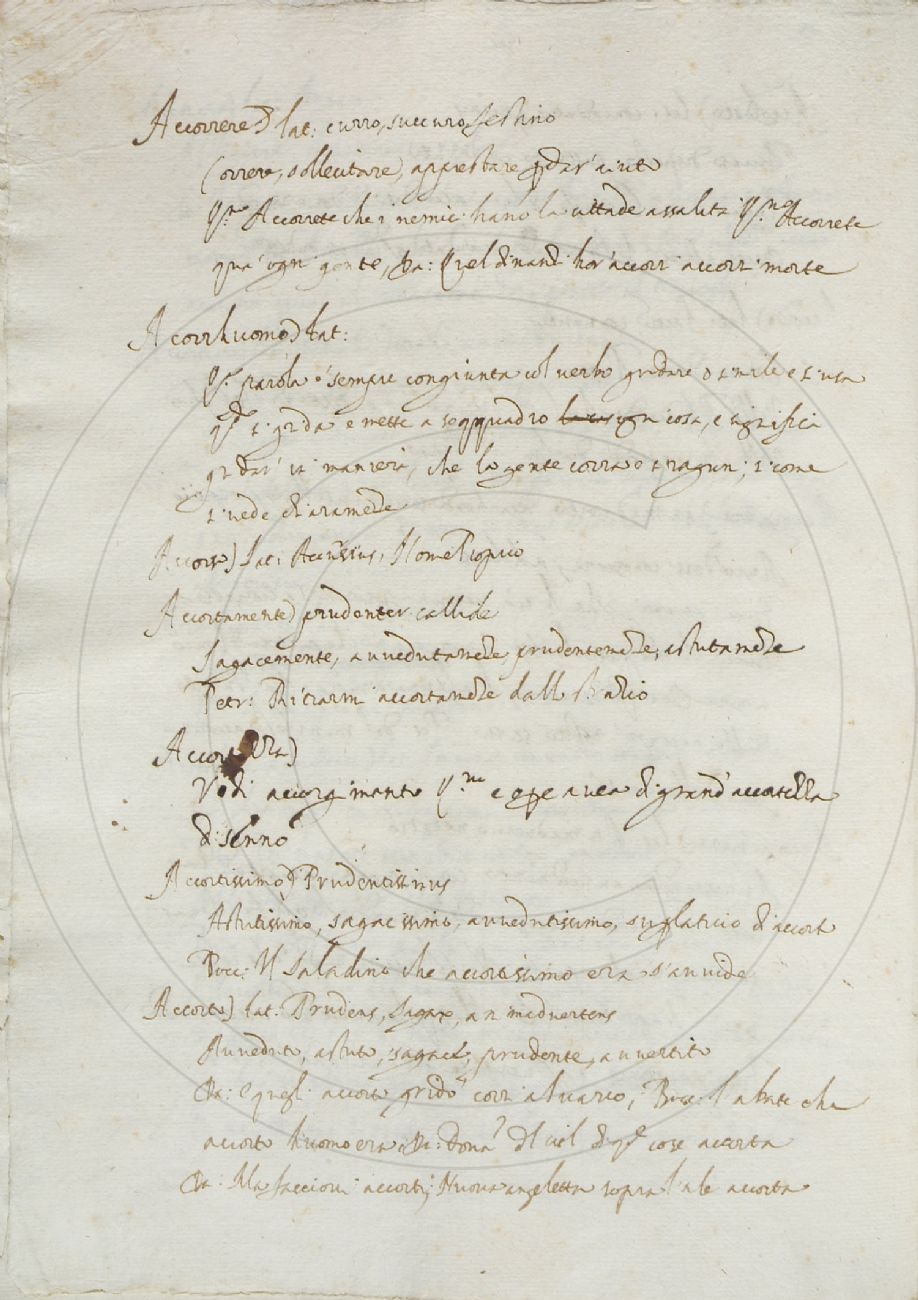 Accorrere) lat: curro, succuro, festino
Correre, sollecitare, apprestare p dar' aiuto
Accorrete che i nemici hano la cittade assalita Accorrete
qua' ogni gente, Da: Quel dinanzi hor' accorr' accorri morte
Accorrhuomo) lat:
parola è sempre congiunta col verbo gridare o simile e s'usa
si grida e mette a soqquadro ogni cosa, e significa
gridar' in maniera, che la gente corra e si raguni; si come
si vede chiaramente
Accorso) lat: Accursius, Nome Proprio
Accortamente) prudenter callide
Sagacemente, avvedutamente prudentemente, astutamente
Petr: Ritrarmi accortamente dallo stratio
Accortezza)
Vedi accorgimento e avea di grand' accortezza
di senno
Accortissimo) Prudentissimus
Astutissimo, sagacissimo, avvedutissimo, suplativo di accorto
Bocc: Il Saladino che accortissimo era s'avvide
Accorto) lat: Prudens, Sagax, animadvertens
Avveduto, astuto, sagace, prudente, avvertito
Da: E quegli accorto gridò corri al varco, Bocc: l'abate che
accorto huomo era, Da: Dona del ciel di cose accorta
Da: Ma facciovi accorti; Nuova angeletta sopra l'ale accorta